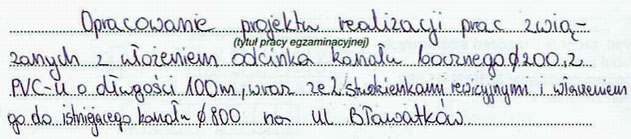 Opracowanie projektu realizacji prac zwią-
(tytuł pracy egzaminacyjnej)
zanych z włożeniem odcinka kanału bocznego ϕ200, z
PVC-U o długości 100m, wraz ze 2 studzienkami rewizyjnymi i włączeniem
go do istniejącego kanału ϕ800 na ul Bławatków